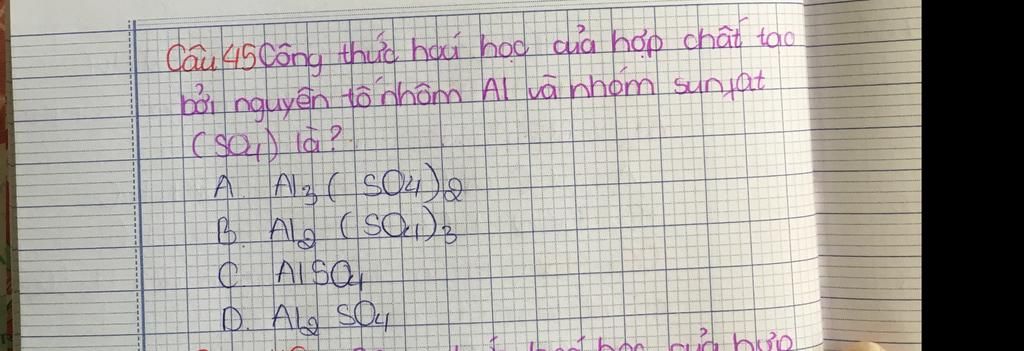 Câu 45 Công thức hoá học của hợp chất tạo
bởi nguyên tố nhôm Al và nhóm sunfat
(SO4) là?
A. Al3(SO4)2
B. Al2(SO4)3
C. AlSO4
D. Al2SO4